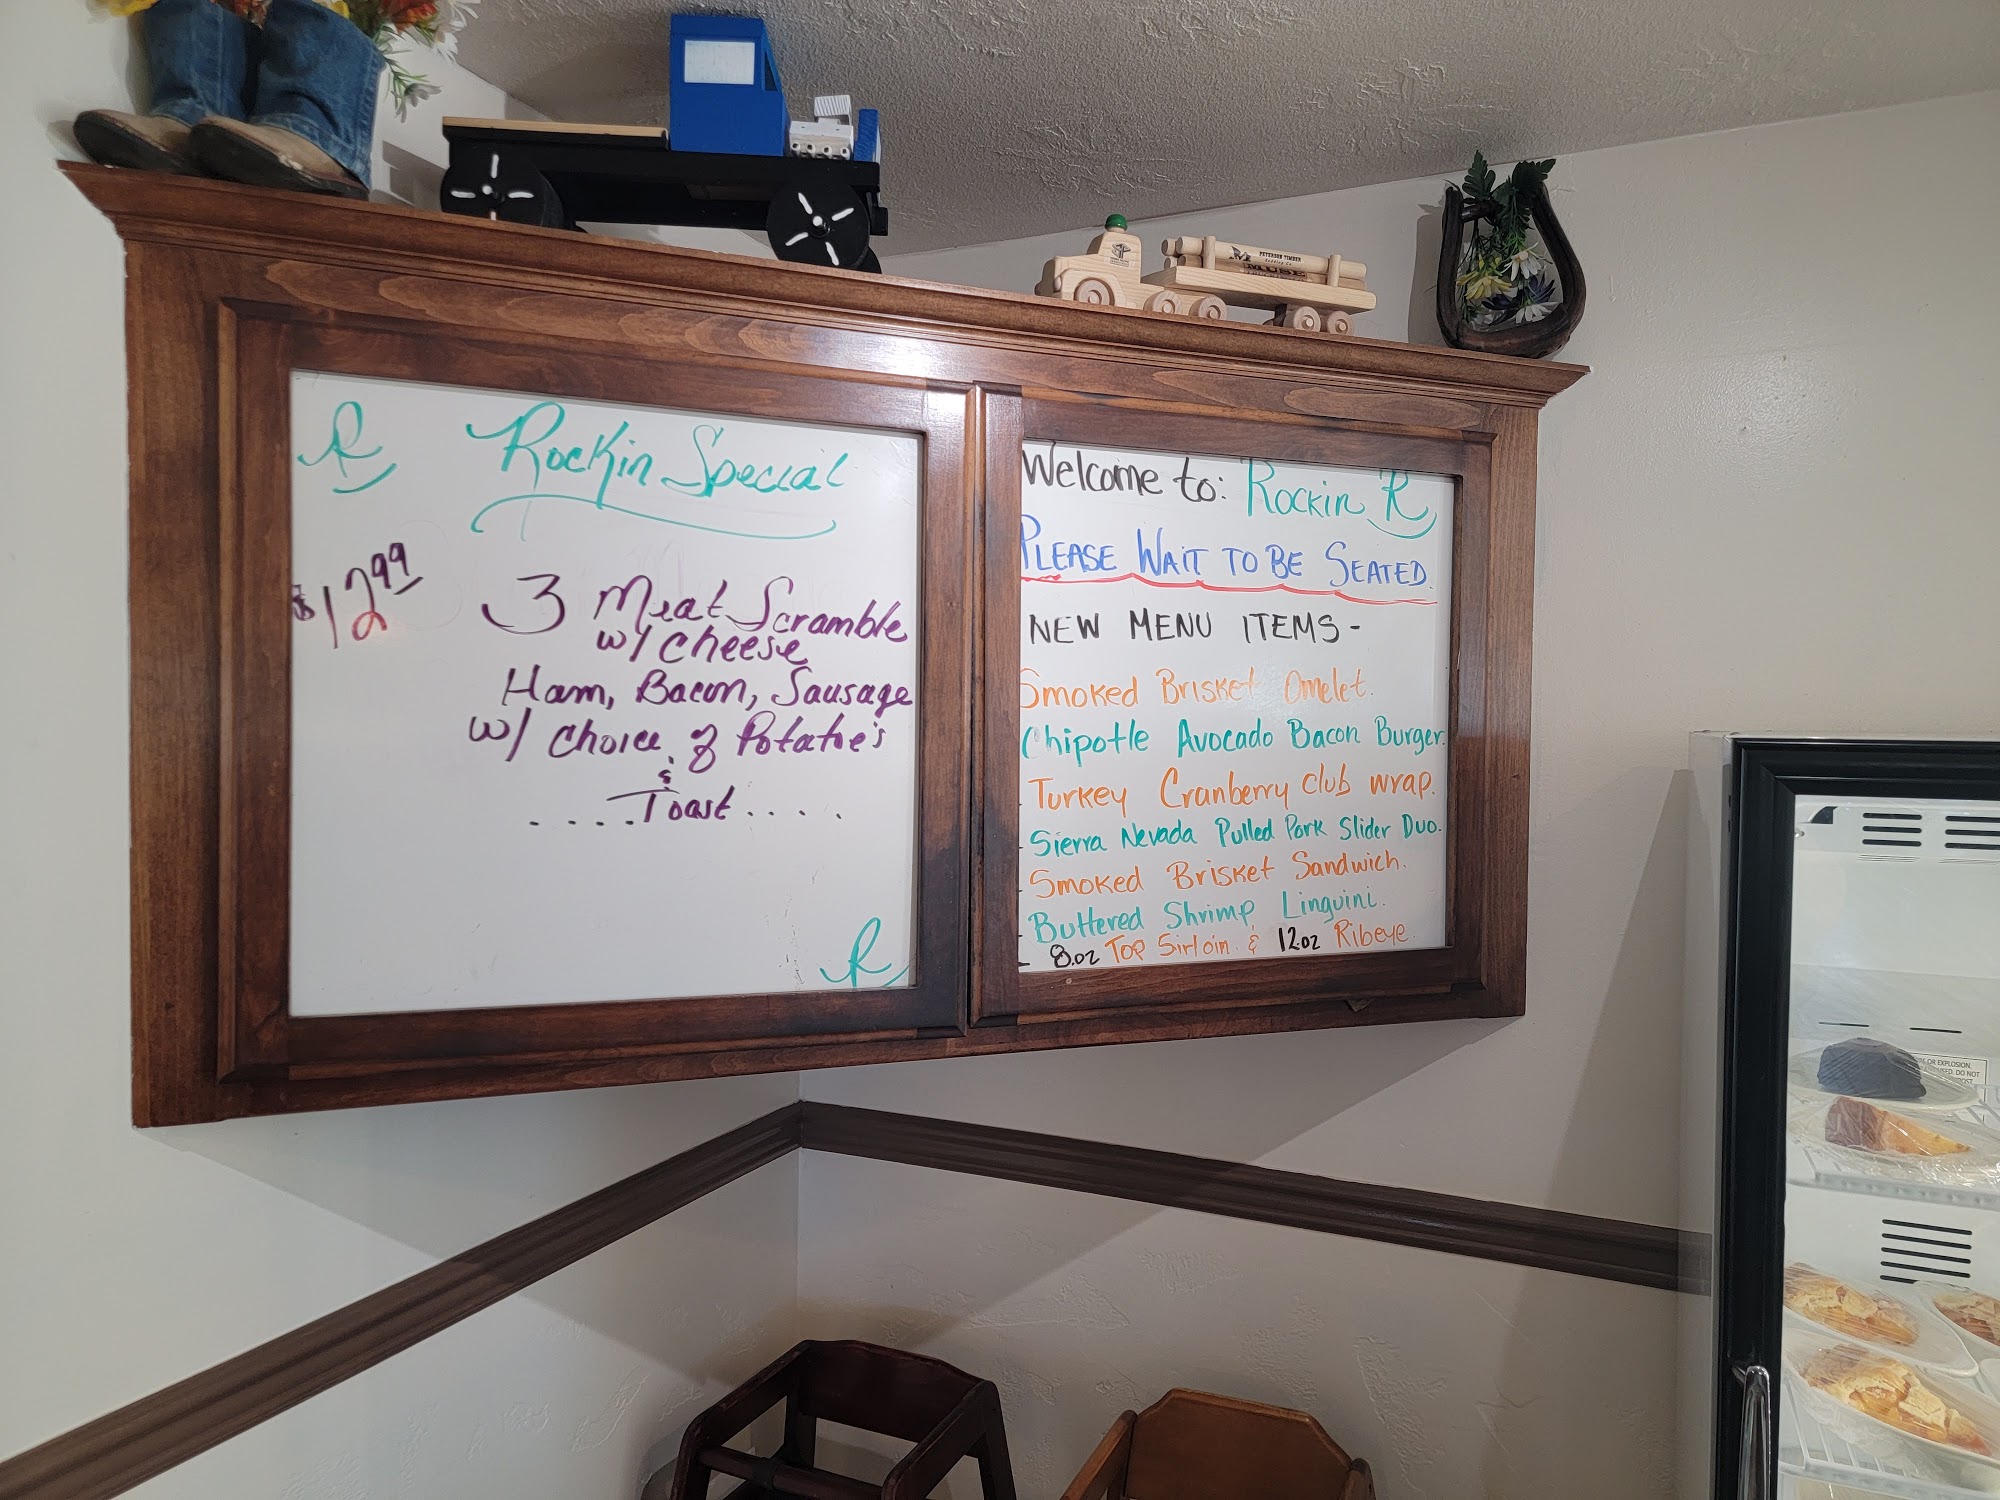 R
Rockin Special
$12.99
3 Meat Scramble
w/ Cheese
Ham, Bacon, Sausage
w/ Choice of Potatoe's
&
....Toast....
R
Welcome to: Rockin R
PLEASE WAIT TO BE SEATED.
NEW MENU ITEMS-
Smoked Brisket Omelet.
Chipotle Avocado Bacon Burger.
Turkey Cranberry club wrap.
- Sierra Nevada Pulled Pork Slider Duo.
- Smoked Brisket Sandwich.
- Buttered Shrimp Linguini.
- 8.oz Top Sirloin & 12.oz Ribeye.
PETERSON TIMBER
MUSE
OR EXPLOSION.
DO NOT